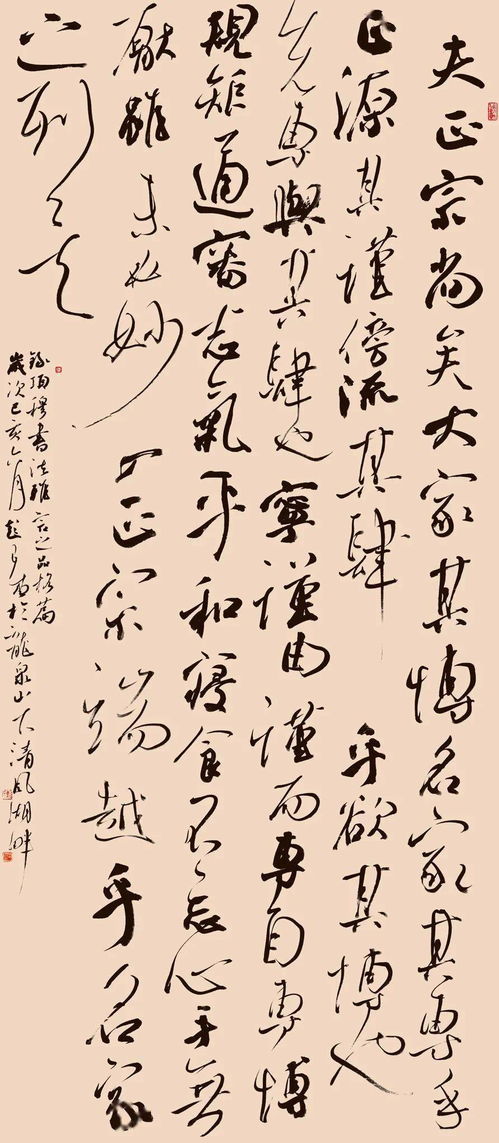 夫正宗尚矣大家其博名家其專乎
正源其謹傍流其肆乎欲其博也
先專與其肆也寧謹由謹而專自專博
規矩通審志氣平和寢食不忘心手無
厭雖未必妙入正宗端越乎名家
之列矣
錄項穆書法雅言之品格篇
歲次己亥六月於龍泉山下清風湖畔